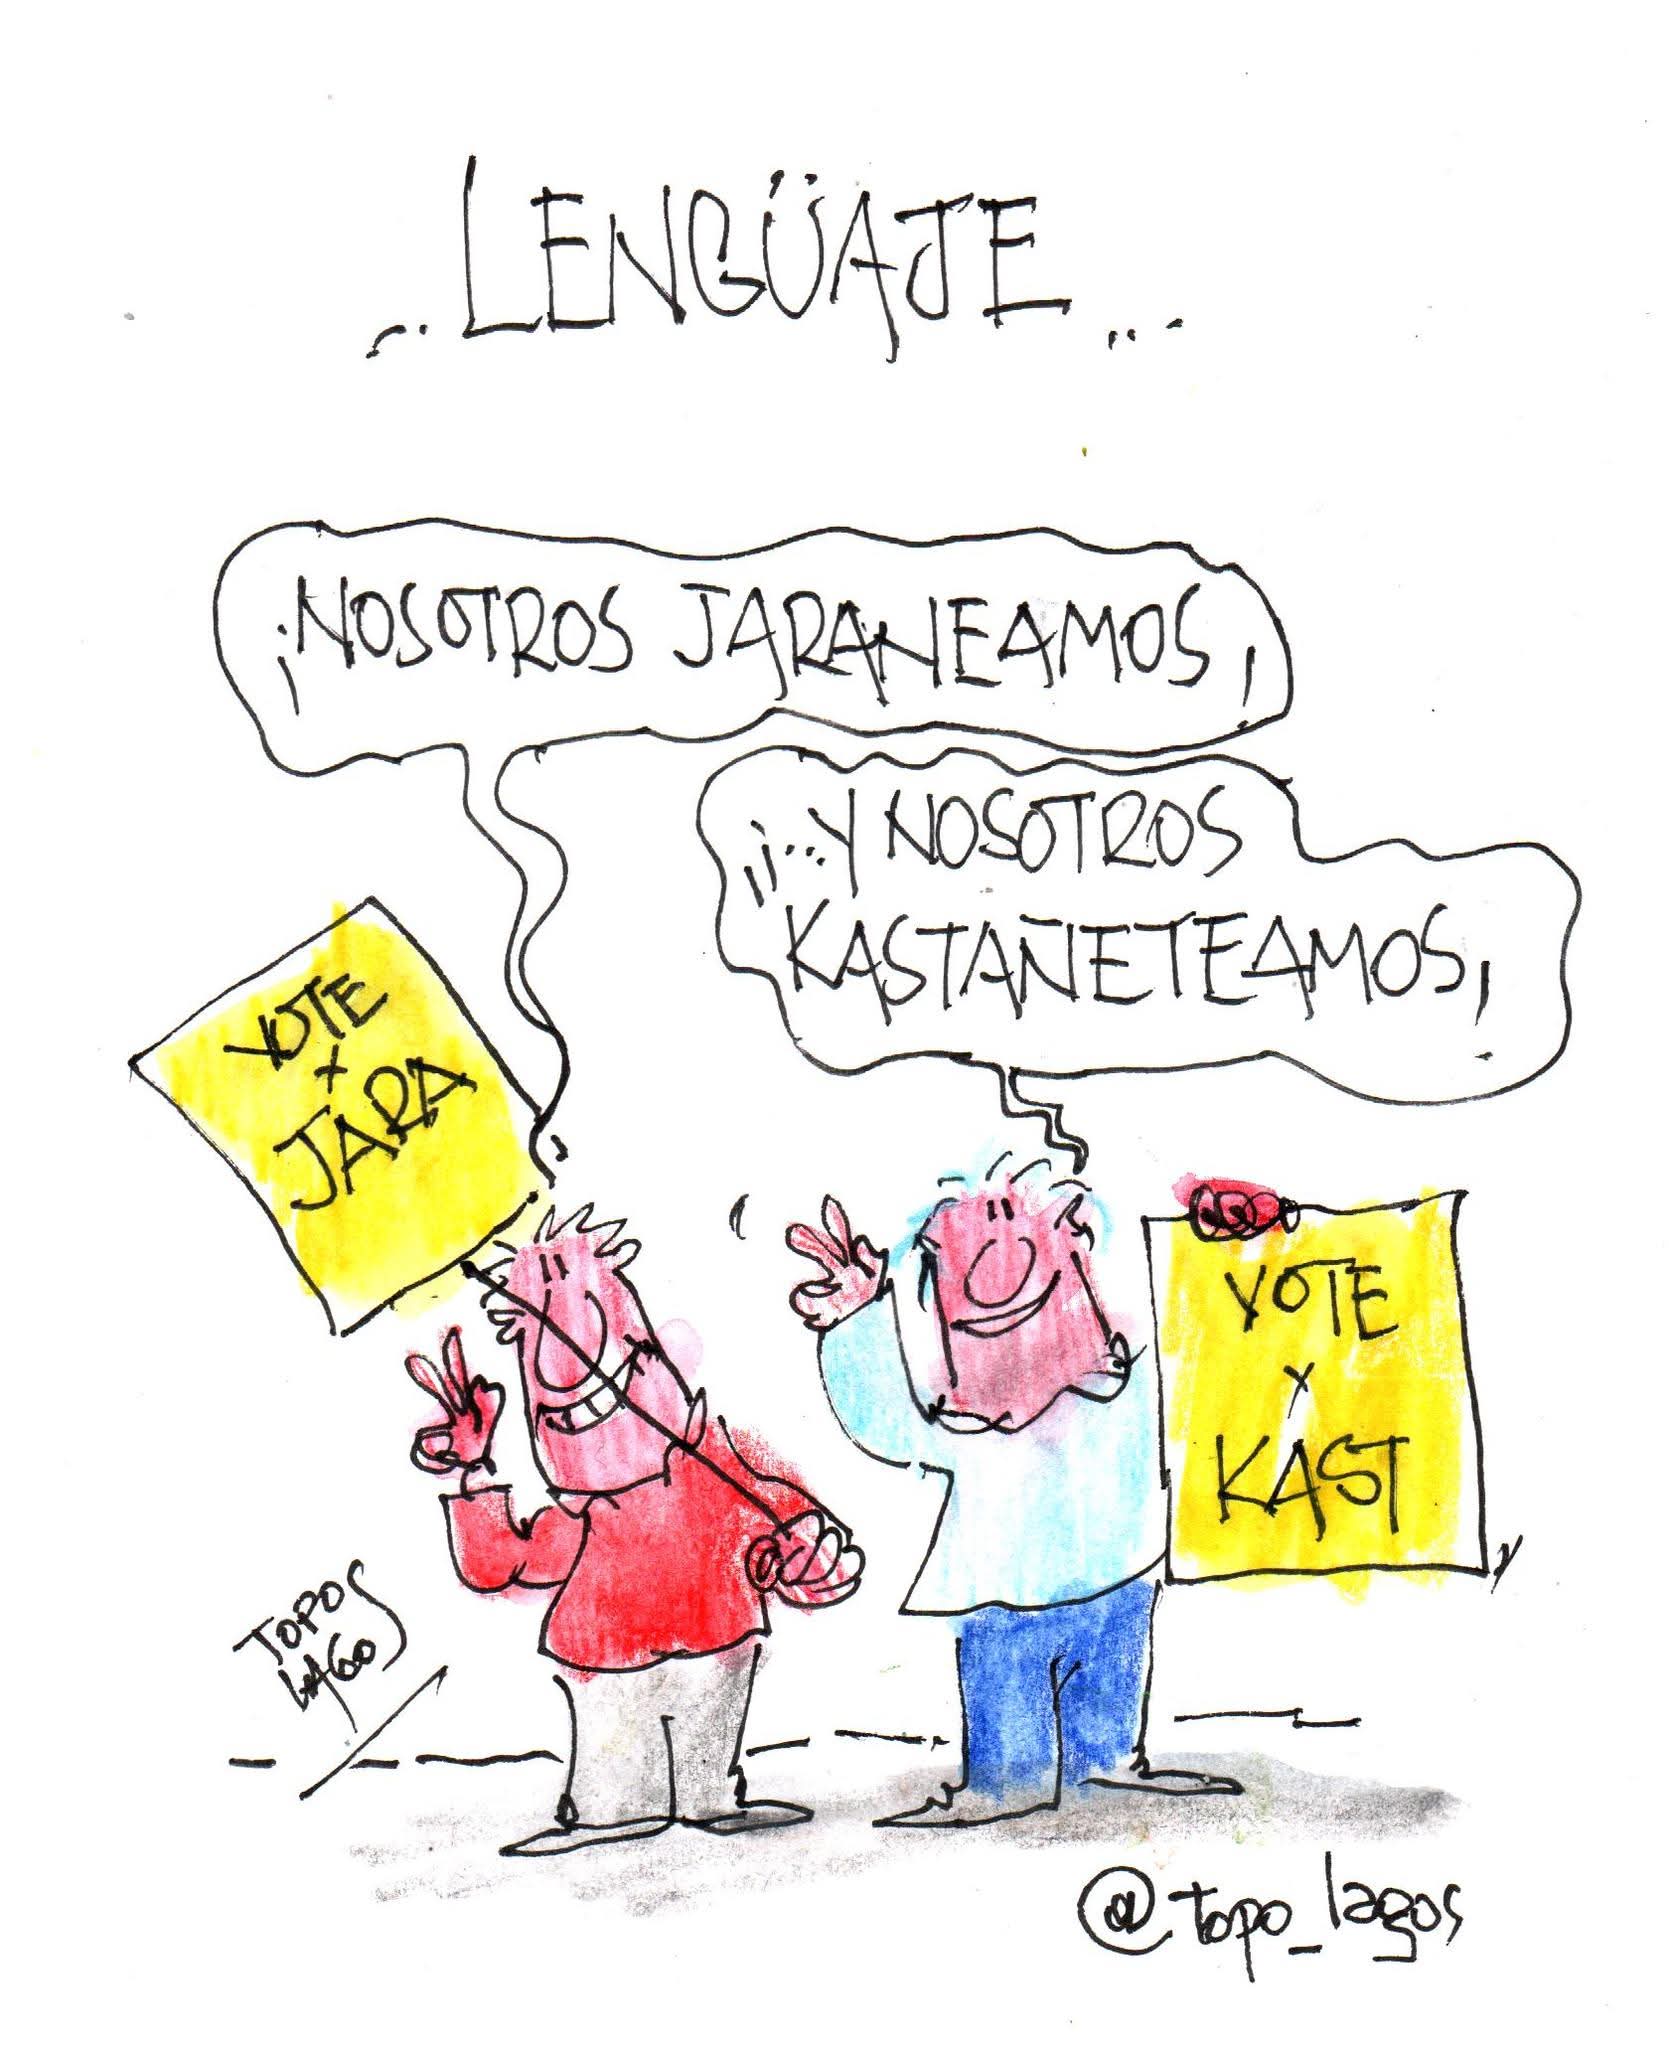 ...LENGÜAJE...
¡NOSOTROS JARANEAMOS,
¡¡...Y NOSOTROS
KASTAÑETEAMOS,
VOTE
X
JARA
VOTE
X
KAST
TOPO
LAGOS
@topo_lagos